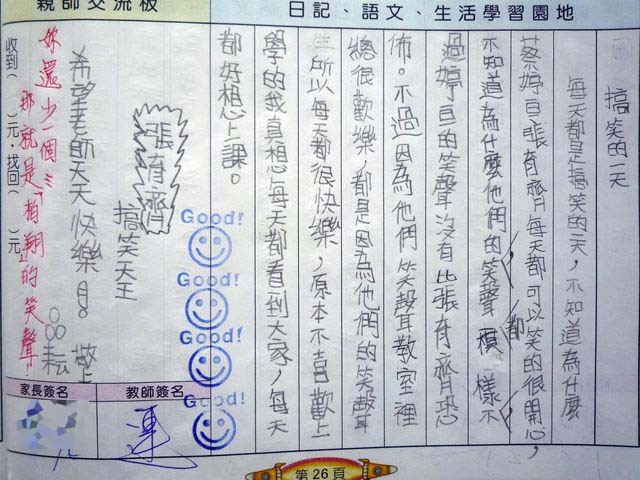 日記、語文、生活學習園地
搞笑的一天
每天都是搞笑的一天,不知道為什麼
蔡婷
張育齊每天都可以笑的很開心,
不知道為什麼他們的笑聲,都
一樣不
過婷
的笑聲沒有比張育齊恐
佈。不過因為他們笑聲教室裡
總很歡樂,都是因為他們的笑聲
三所以每天都很快樂,原本不喜歡上
學的我真想每天都看到大家,每天
都好想上課。
Good!
Good!
Good!
Good!
張育齊
搞笑天王
希望老師天天快樂
敬上
親師交流板
妳還少一個
那就是「柏翔」的笑聲!
收到( )元,找回( )元
家長簽名
教師簽名
連
第26頁